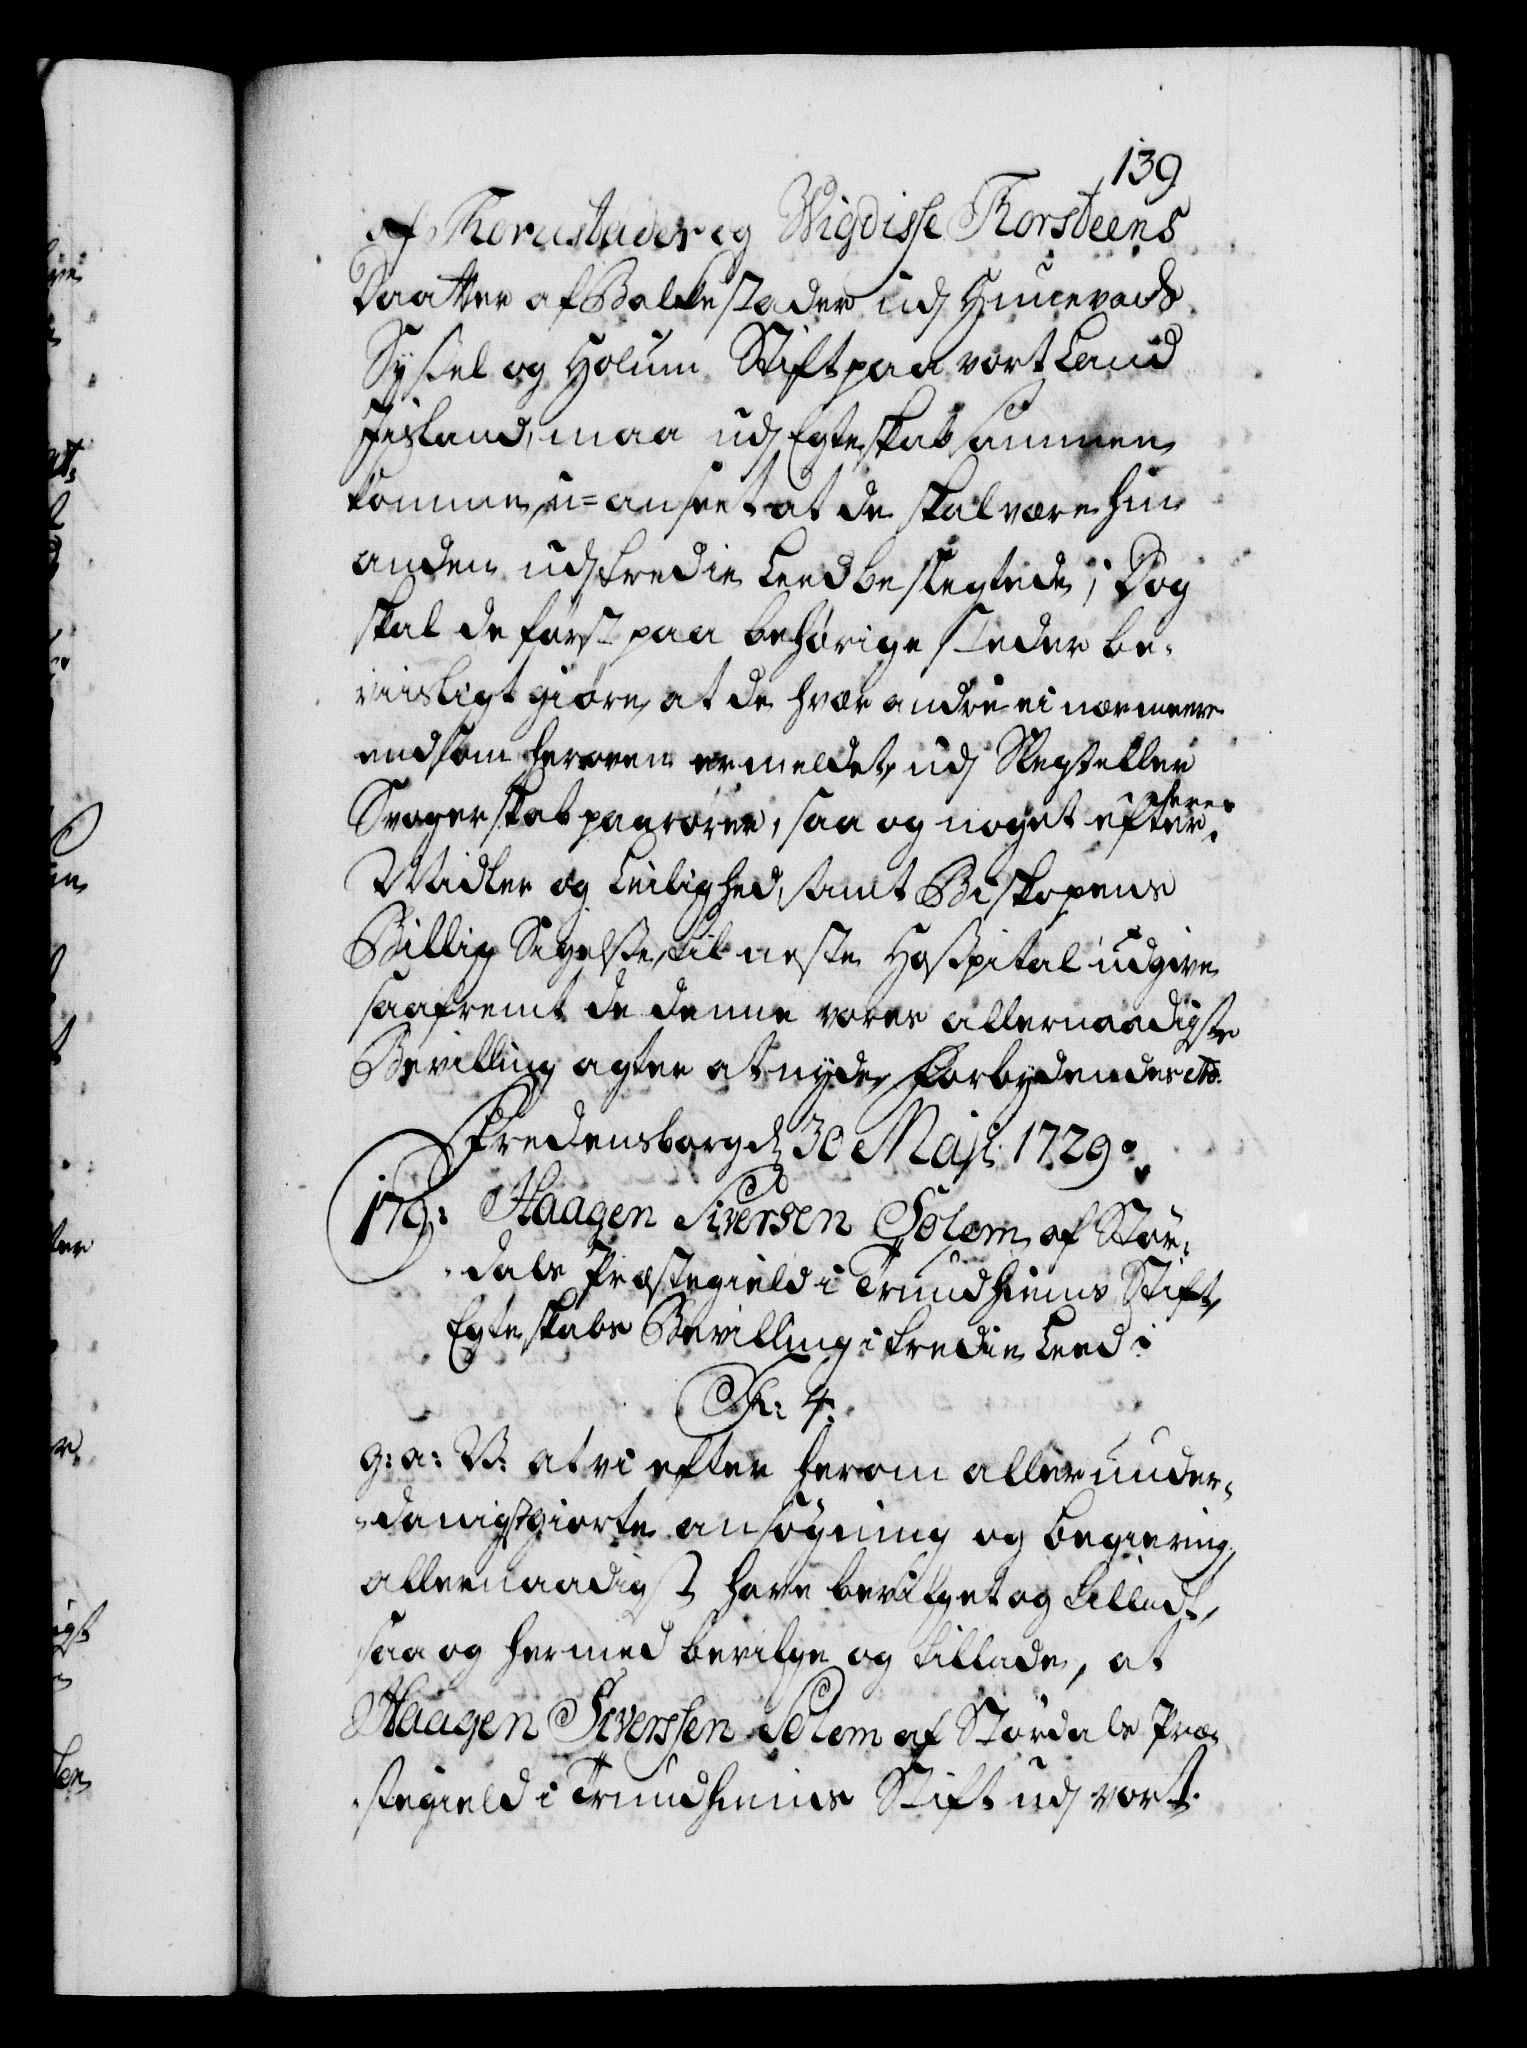 139
af Torustader og Wigdisse Thorsteens
Daatter af Balkestader udj Hunevads
Syssel og Holum Stift paa vort Land
Iisland, maa udj Egteskab sammen
komme, u=anseet at de skal være hin
anden udj tredie Leed beslegtede; Dog
skal de først paa behørige steder be„
viisligt giøre, at de hver andre ei nærmere
end som heroven ermeldet, udj Slegt eller
Svogerskab paarører, saa og noget efter deres
Midler og Leilighed, samt Biskopens
Billig Sigelse, til neste Hospital udgive
saafremt de denne vores allernaadigste
Bevilling agter at nyde, Forbydendes etc.
Fredensborg d 30 Maji 1729.
179: Haagen Siversen Solem af Stør„
„dals Præstegield i Trundhiems Stift,
Egteskabs Bevilling i tredie Leed i
Sk: 4.
g: a: V: at vi efter herom allerunder„
„danigst giorte ansøgning og begiering,
allernaadigst have bevilget og tilladt,
saa og hermed bevilge og tillade, at
Haagen Siverssen Solem af Størdals Præ„
„stegield i Trundhiems Stift udj vort